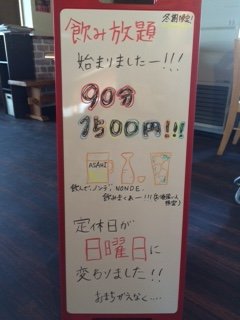 冬期限定!
飲み放題
始まりましたー!!!
90分
1500円!!!
ASAHI
飲んで、ノンデ、NONDE、
飲みまくぁー!!!
定休日が
日曜日に
変わりました!!
おまちがえなく....